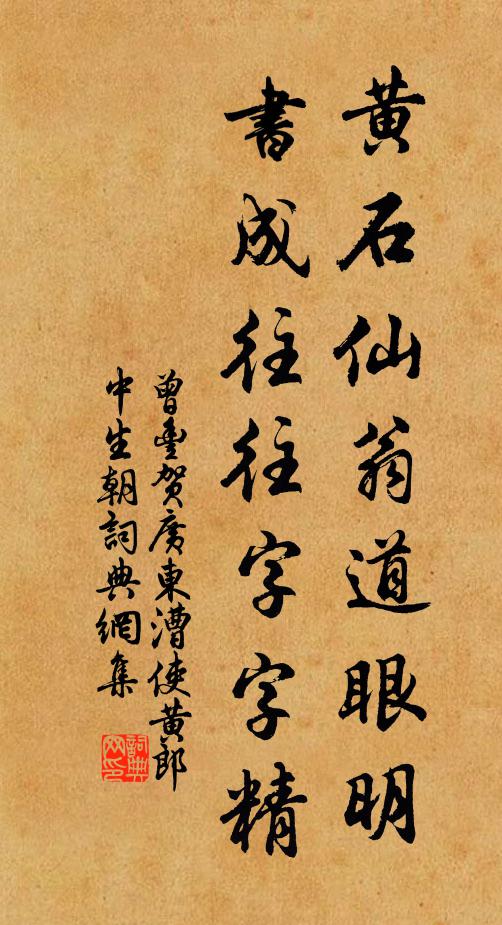 黄石仙翁道眼明
書成往往字字精
曾豐賀廣東漕使黄郎
中生朝詞典網集
詞典網印